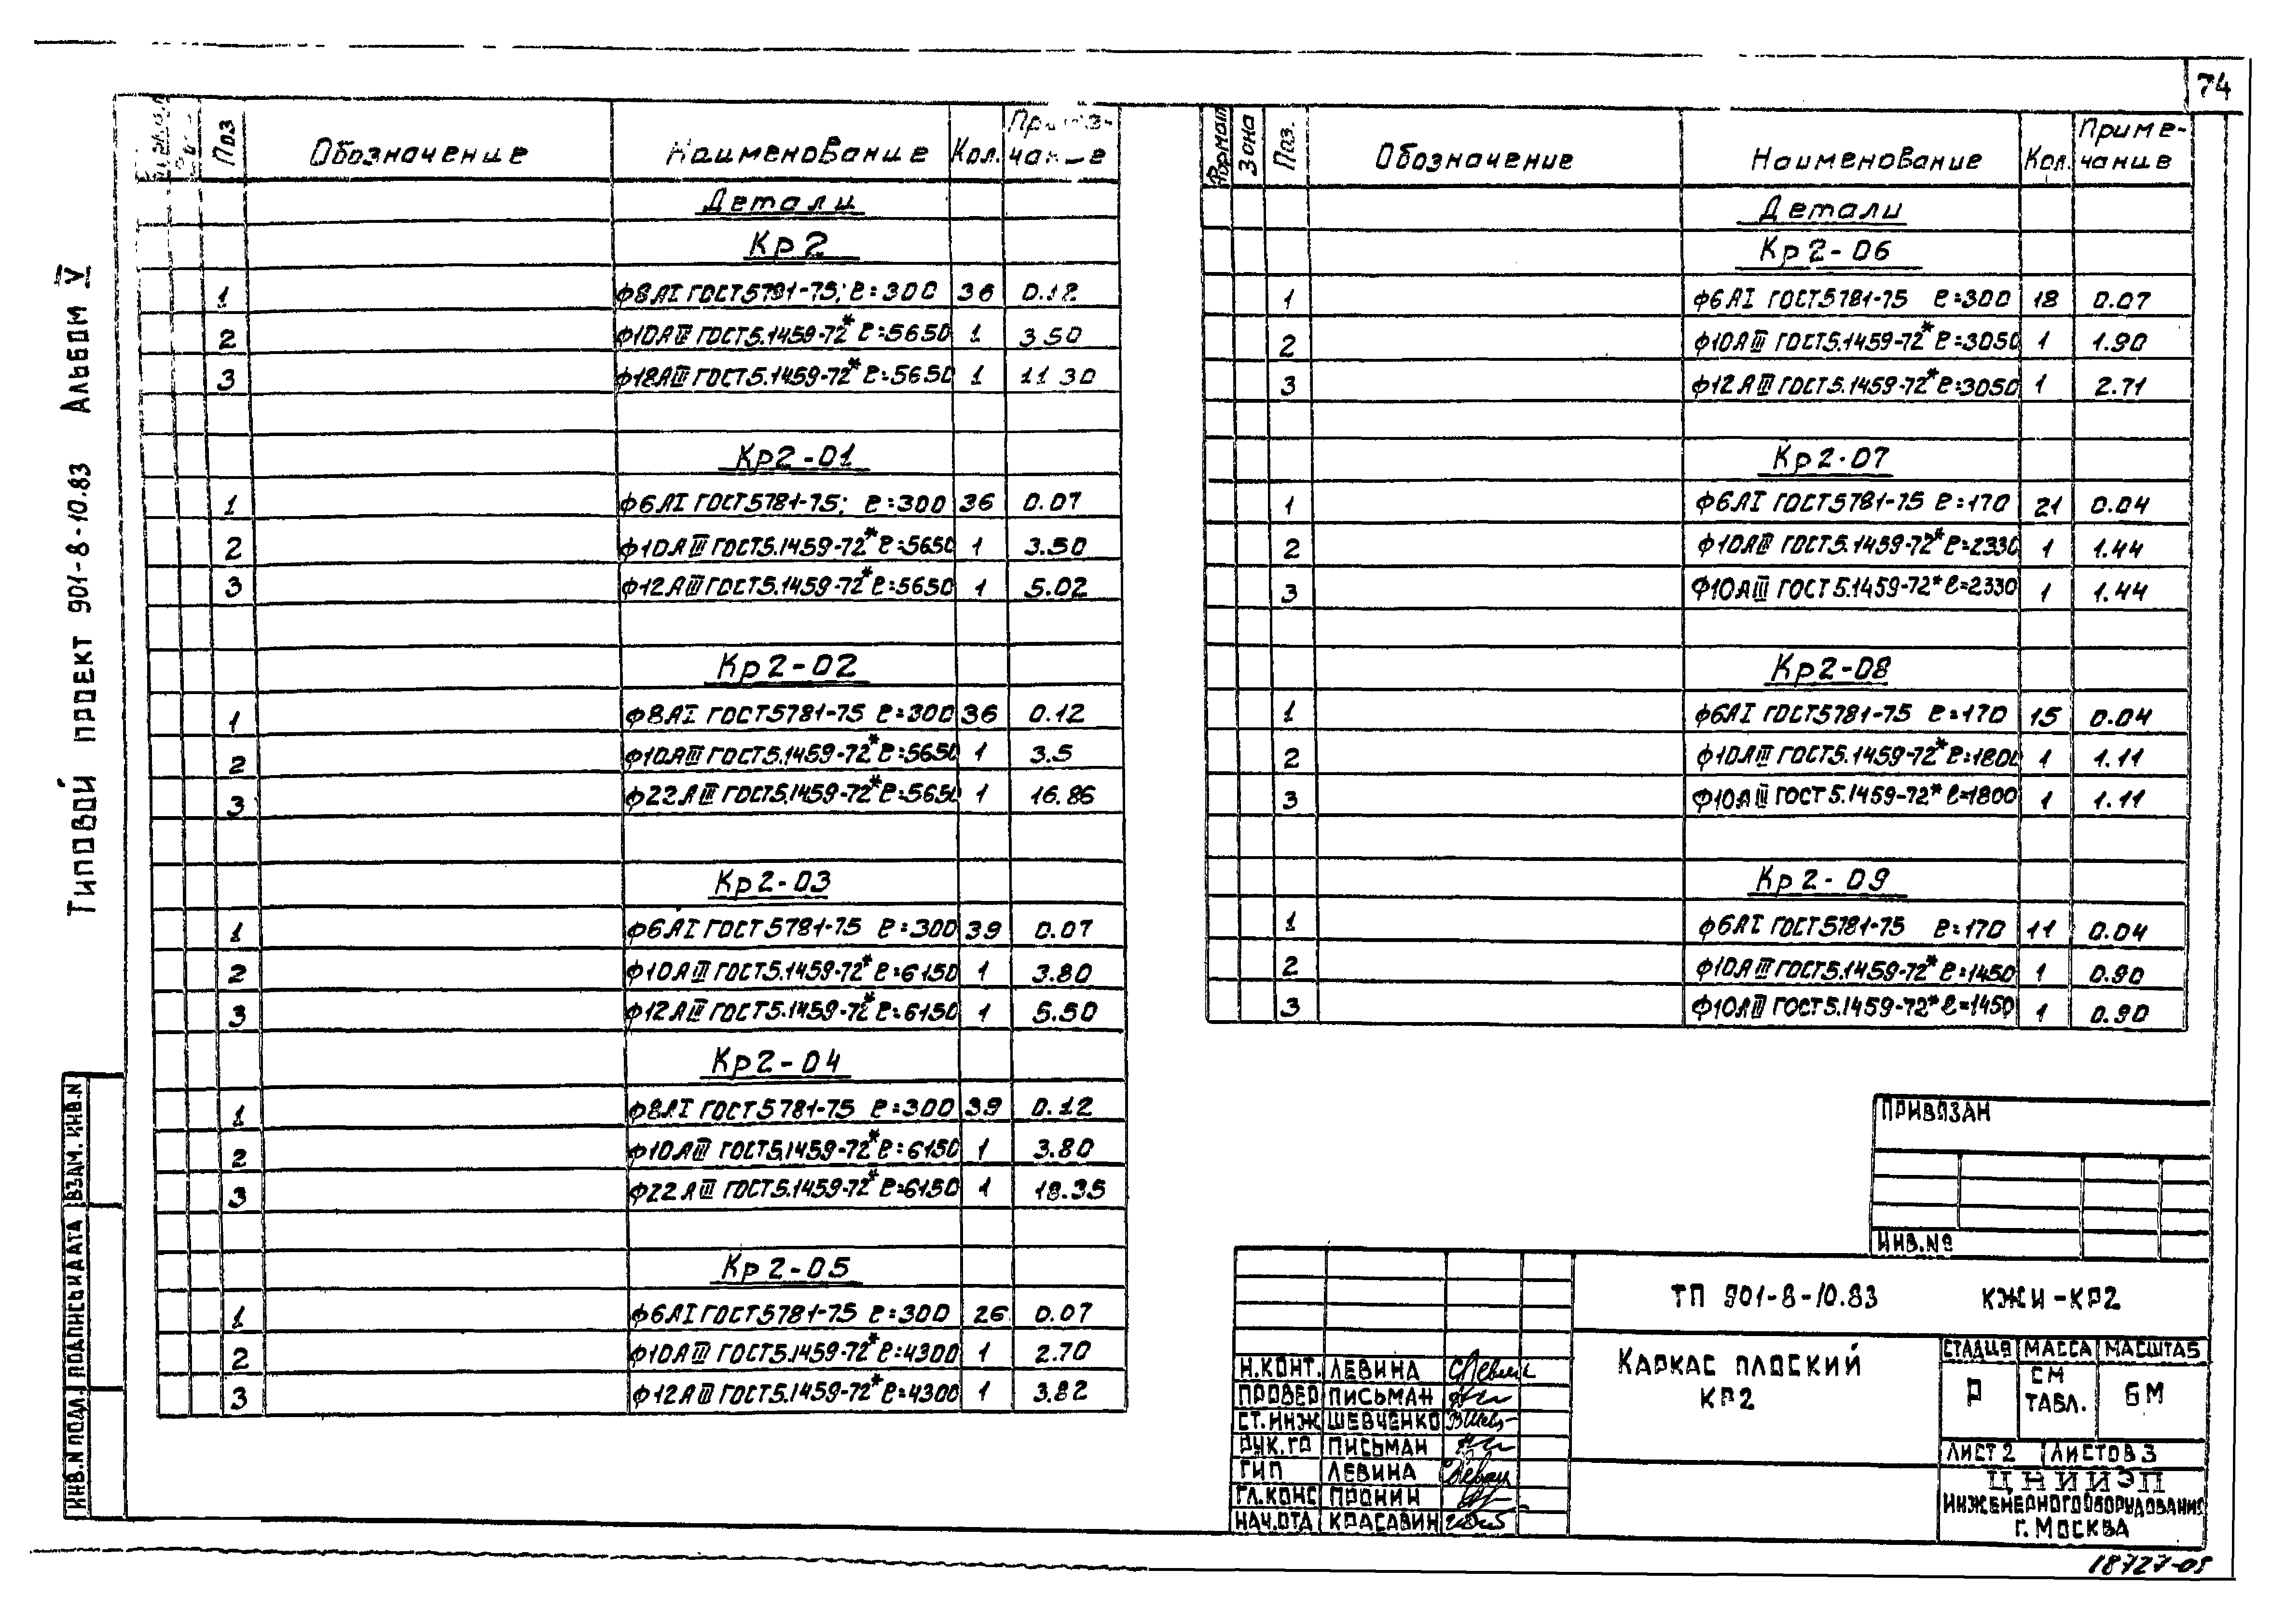 74
Типовой проект 901-8-10.83 Альбом V
Поз Обозначение Наименование Кол.
Детали
Кр2
1 ф8АI ГОСТ5781-75; ℓ=300 36 0.12
2 ф10АIII ГОСТ5.1459-72* ℓ=5650 1 3 50
3 ф18АIII ГОСТ5.1459-72* ℓ=5650 1 11 30
Кр2-01
1 ф6АI ГОСТ5781-75; ℓ=300 36 0.07
2 ф10АIII ГОСТ5.1459-72* ℓ=5650 1 3.50
3 ф12АIII ГОСТ5.1459-72* ℓ=5650 1 5.02
Кр2-02
1 ф8АI ГОСТ5781-75 ℓ=300 36 0.12
2 ф10АIII ГОСТ5.1459-72* ℓ=5650 1 3.5
3 ф22АIII ГОСТ5.1459-72* ℓ=5650 1 16.86
Кр2-03
1 ф6АI ГОСТ5781-75 ℓ=300 39 0.07
2 ф10АIII ГОСТ5.1459-72* ℓ=6150 1 3.80
3 ф12АIII ГОСТ5.1459-72* ℓ=6150 1 5.50
Кр2-04
1 ф8АI ГОСТ5781-75 ℓ=300 39 0.12
2 ф10АIII ГОСТ5.1459-72* ℓ=6150 1 3.80
3 ф22АIII ГОСТ5.1459-72* ℓ=6150 1 18.35
Кр2-05
1 ф6АI ГОСТ5781-75 ℓ=300 26 0.07
2 ф10АIII ГОСТ5.1459-72* ℓ=4300 1 2.70
3 ф12АIII ГОСТ5.1459-72* ℓ=4300 1 3.82
Формат Зона Поз. Обозначение Наименование Кол. Приме-
чание
Детали
Кр2-06
1 ф6АI ГОСТ5781-75 ℓ=300 18 0.07
2 ф10АIII ГОСТ5.1459-72* ℓ=3050 1 1.90
3 ф12АIII ГОСТ5.1459-72* ℓ=3050 1 2.71
Кр2-07
1 ф6АI ГОСТ5781-75 ℓ=170 21 0.04
2 ф10АIII ГОСТ5.1459-72* ℓ=2330 1 1.44
3 ф10АIII ГОСТ5.1459-72* ℓ=2330 1 1.44
Кр2-08
1 ф6АI ГОСТ5781-75 ℓ=170 15 0.04
2 ф10АIII ГОСТ5.1459-72* ℓ=1800 1 1.11
3 ф10АIII ГОСТ5.1459-72* ℓ=1800 1 1.11
Кр2-09
1 ф6АI ГОСТ5781-75 ℓ=170 11 0.04
2 ф10АIII ГОСТ5.1459-72* ℓ=1450 1 0.90
3 ф10АIII ГОСТ5.1459-72* ℓ=1450 1 0.90
ИНВ.N ПОДЛ. ПОДПИСЬ И ДАТА ВЗАМ.ИНВ.N
ПРИВЯЗАН
ИНВ.№
ТП 901-8-10.83 КЖИ-КР2
КАРКАС ПЛОСКИЙ
КР2
СТАДИЯ МАССА МАСШТАБ
Р СМ ТАБЛ. БМ
ЛИСТ 2 ЛИСТОВ 3
ЦНИИЭП
ИНЖЕНЕРНОГО ОБОРУДОВАНИЯ
Г. МОСКВА
Н.КОНТ. ЛЕВИНА
ПРОВЕР ПИСЬМАН
СТ.ИНЖ ШЕВЧЕНКО
РУК.ГР ПИСЬМАН
ГИП ЛЕВИНА
ГЛ.КОНС ПРОНИН
НАЧ.ОТД КРАСАВИН
18727-05